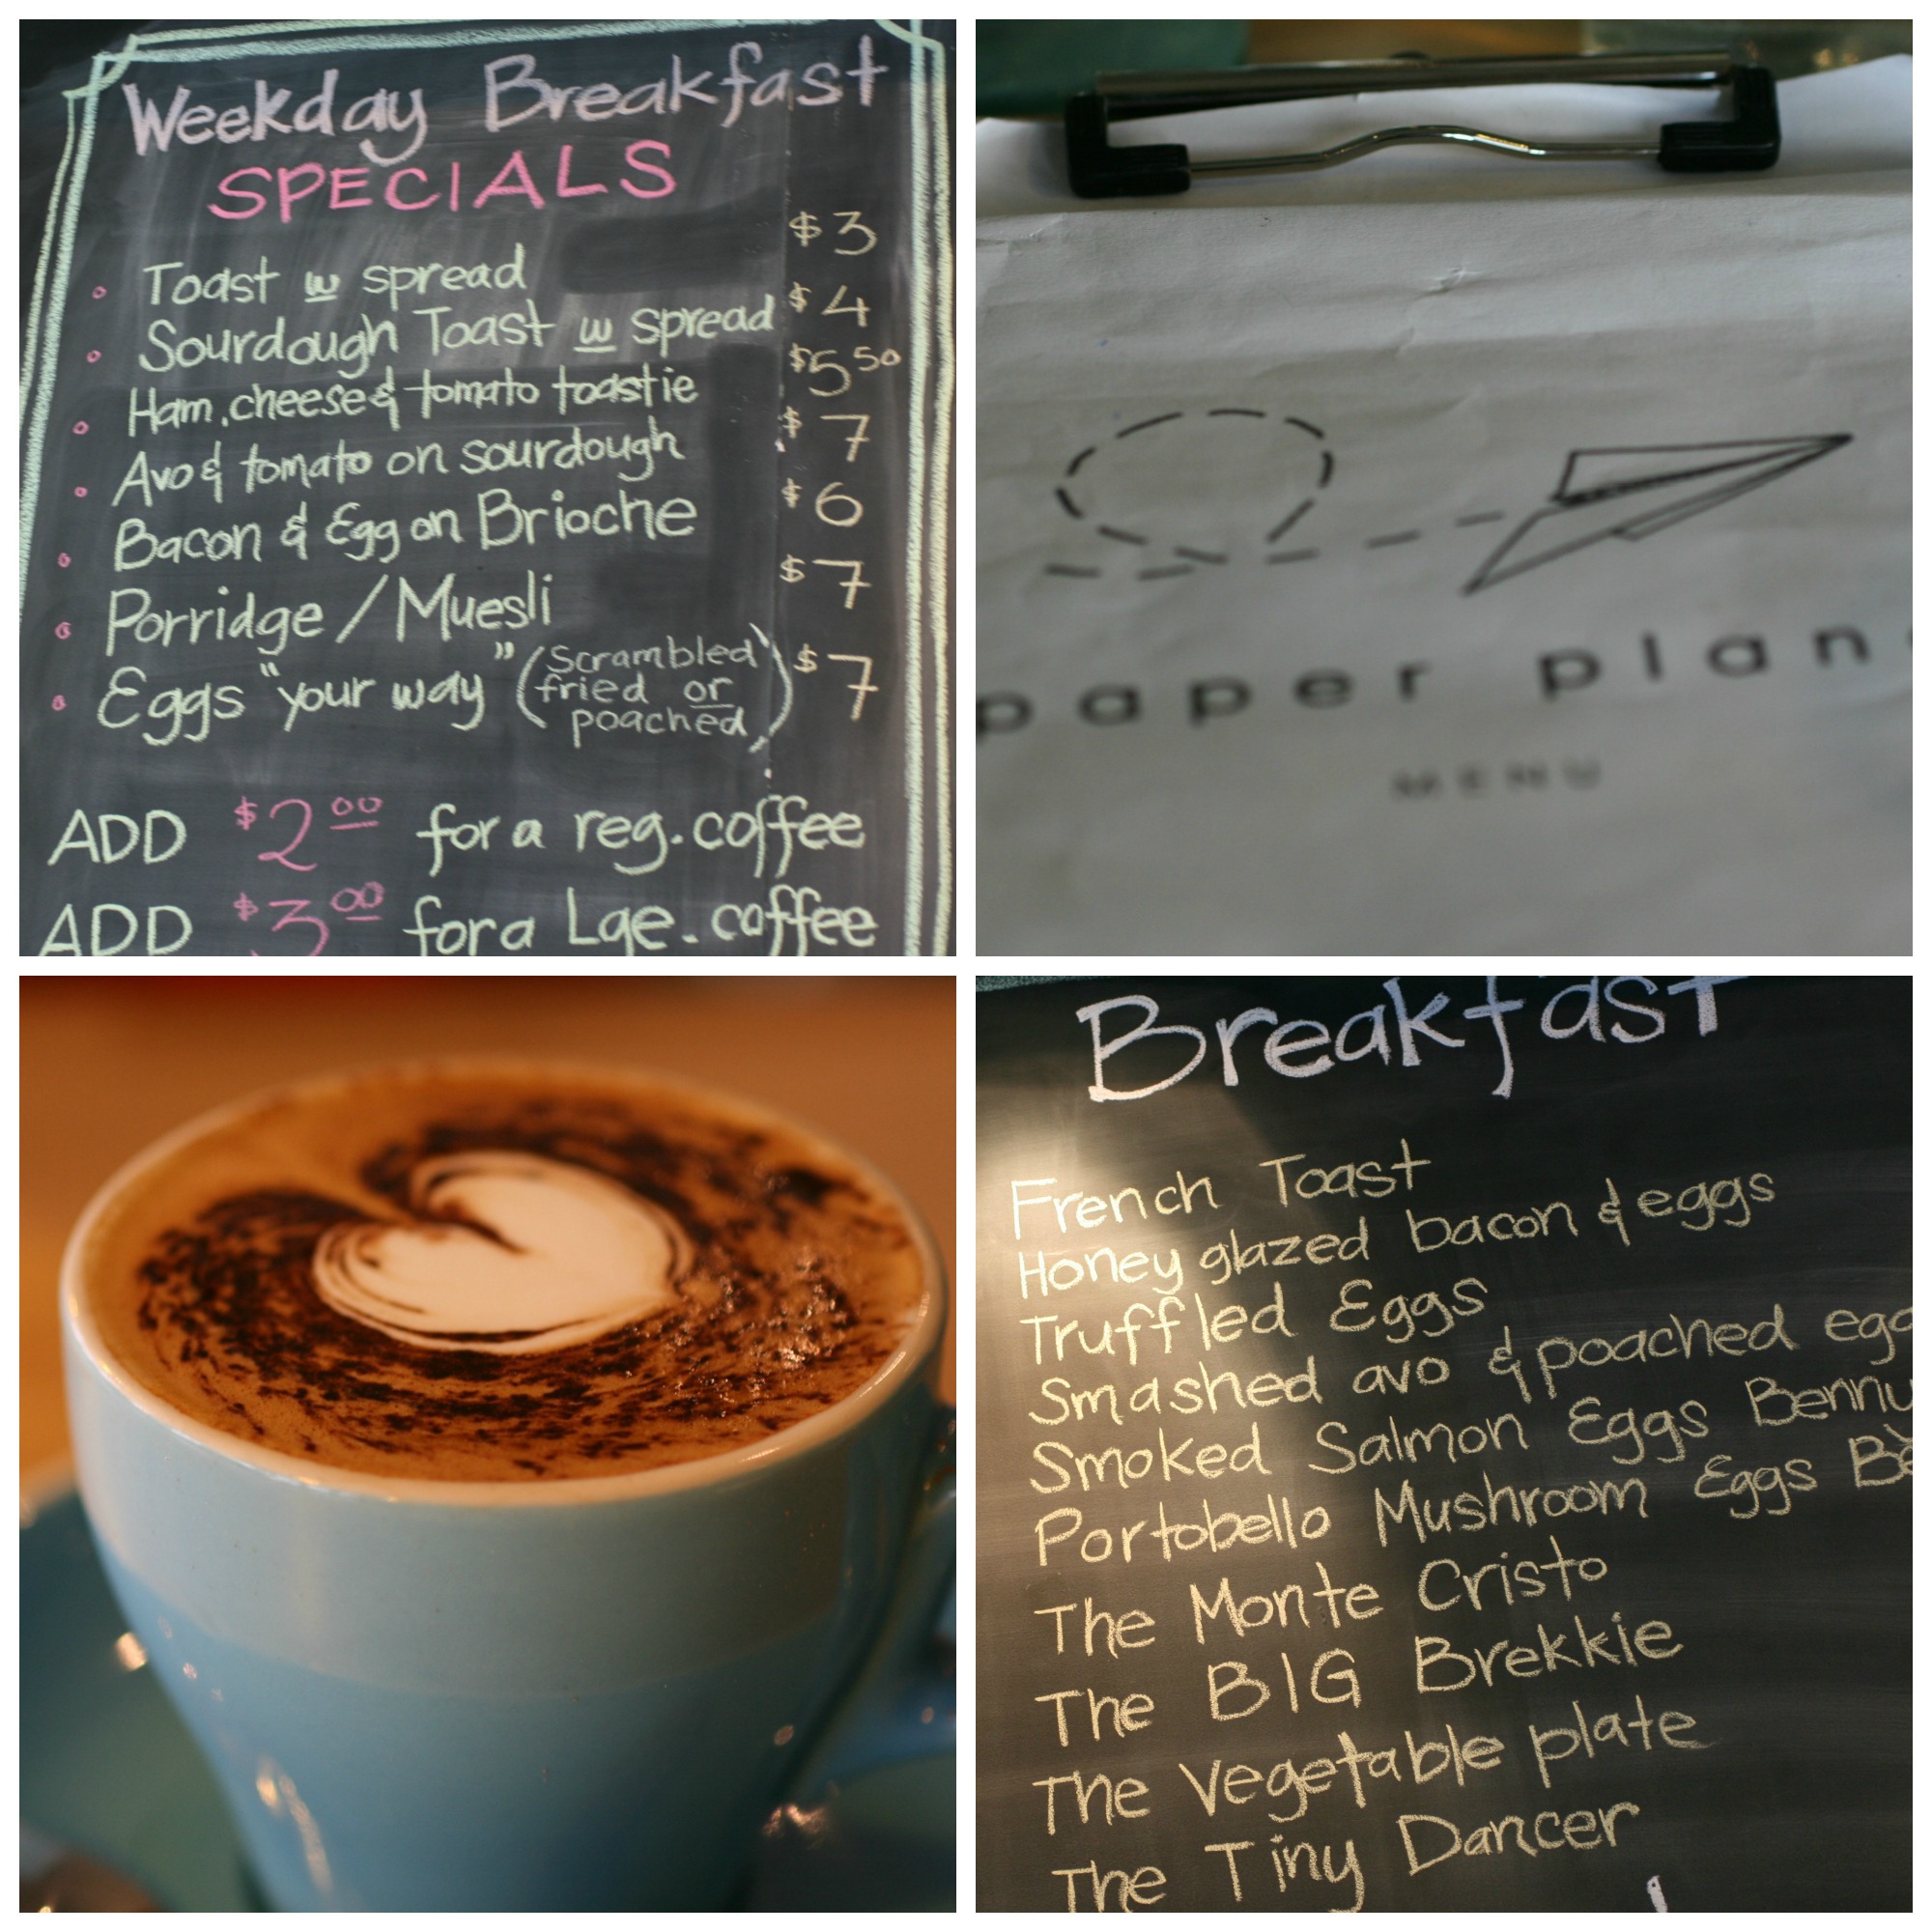 Weekday Breakfast
SPECIALS
Toast w spread $3
Sourdough Toast w spread $4
Ham, cheese & tomato toastie $5.50
Avo & tomato on sourdough $7
Bacon & Egg on Brioche $6
Porridge / Muesli $7
Eggs "your way" (scrambled fried or poached) $7
ADD $2.00 for a reg. coffee
ADD $3.00 for a Lge. coffee
paper plan
MENU
Breakfast
French Toast
Honey glazed bacon & eggs
Truffled Eggs
Smashed avo & poached egg
Smoked Salmon Eggs Benny
Portobello Mushroom Eggs Be
The Monte Cristo
The BIG Brekkie
The Vegetable plate
The Tiny Dancer